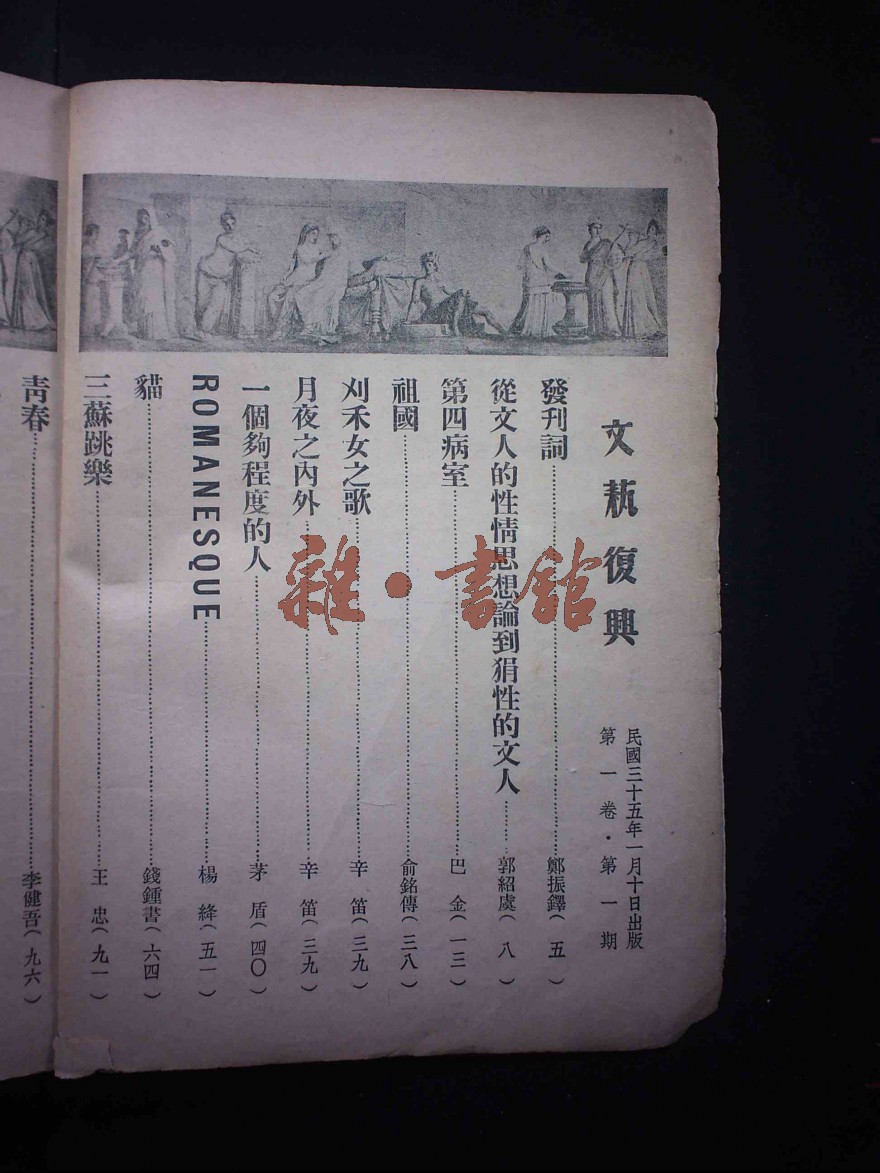 文藝復興
民國三十五年一月十日出版
第一卷・第一期
發刊詞……鄭振鐸（五）
從文人的性情思想論到狷性的文人……郭紹虞（八）
第四病室……巴金（一三）
祖國……俞銘傳（三八）
刈禾女之歌……辛笛（三九）
月夜之內外……辛笛（三九）
一個夠程度的人……茅盾（四〇）
ROMANESQUE……楊絳（五一）
貓……錢鍾書（六四）
三蘇跳樂……王忠（九一）
青春……李健吾（九六）
雜・書館